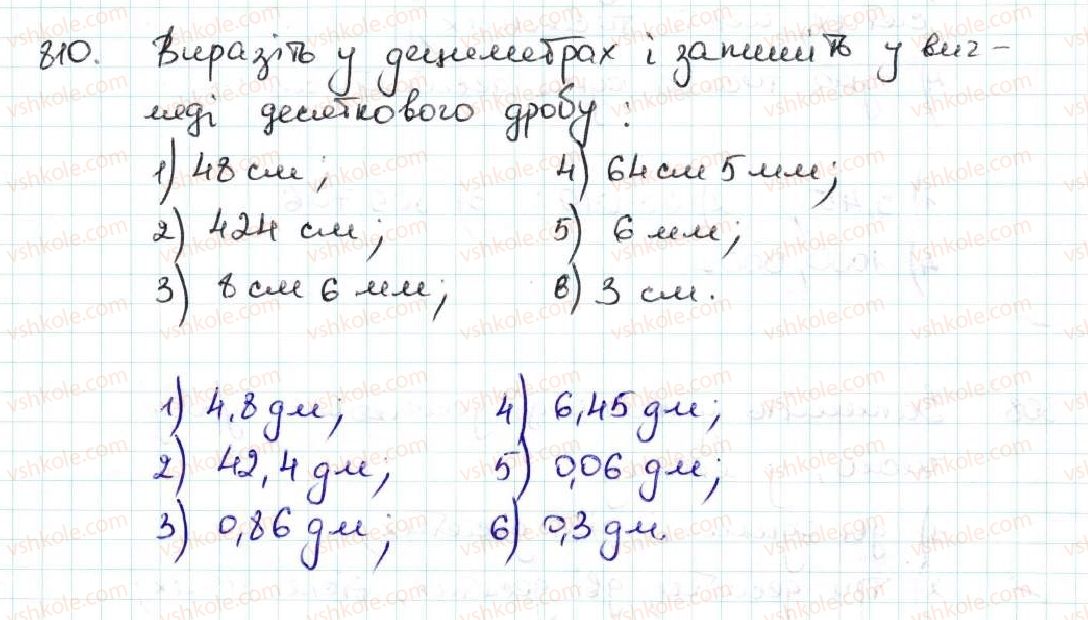 810. Виразіть у дециметрах і запишіть у виг-
ляді десяткового дробу:
1) 48 см; 4) 64 см 5 мм;
2) 424 см; 5) 6 мм;
3) 8 см 6 мм; 6) 3 см.
1) 4,8 дм; 4) 6,45 дм;
2) 42,4 дм; 5) 0,06 дм;
3) 0,86 дм; 6) 0,3 дм.
vshkole.com